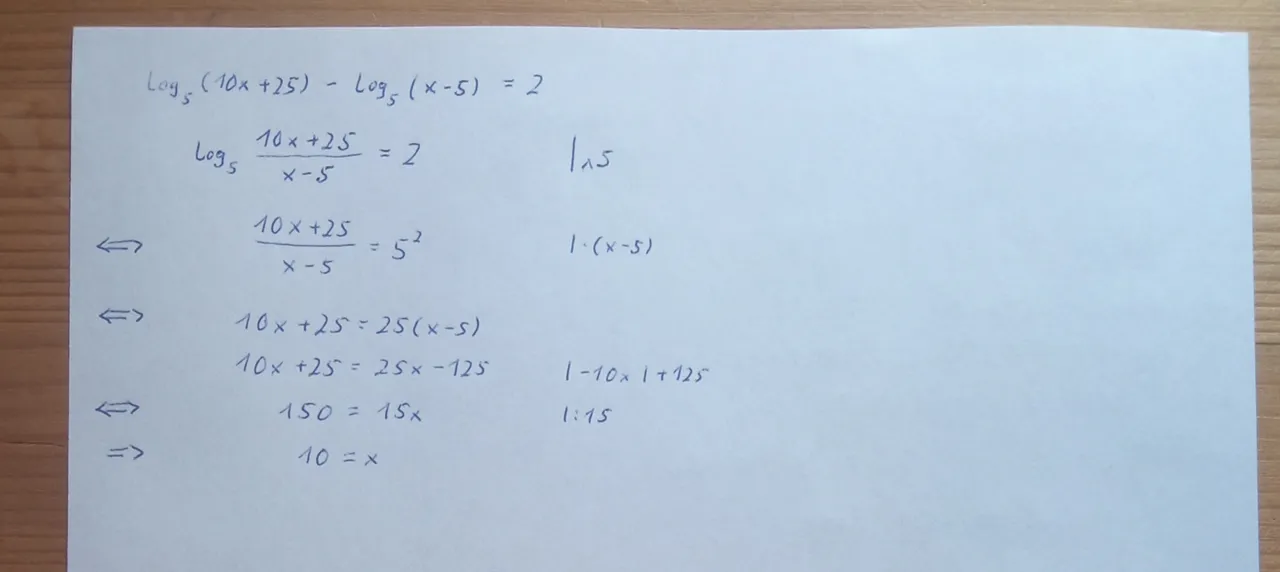 log₅(10x+25) - log₅(x-5) = 2
log₅ (10x+25)/(x-5) = 2 |^5
⇔ (10x+25)/(x-5) = 5² |·(x-5)
⇔ 10x+25 = 25(x-5)
10x+25 = 25x-125 |-10x |+125
⇔ 150 = 15x |:15
=> 10 = x